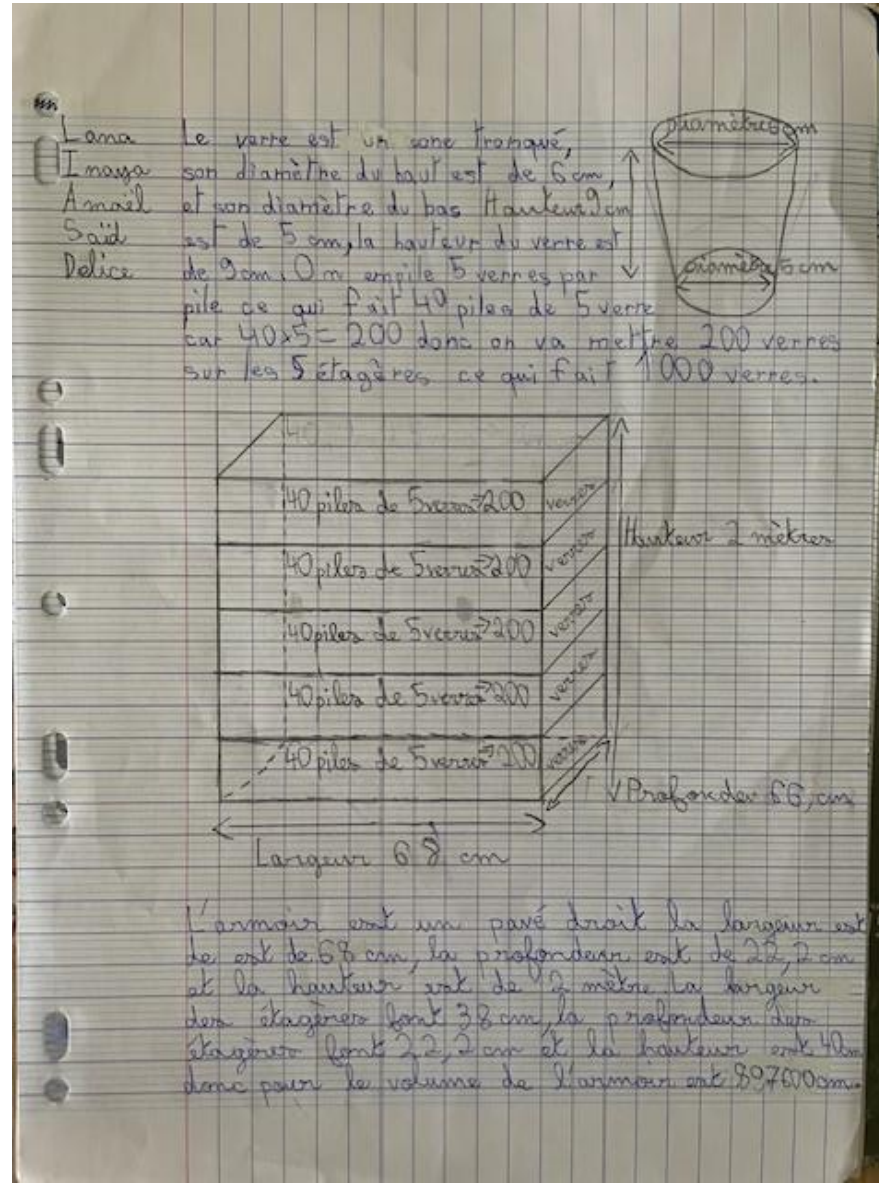 Lana
Inaya
Amaël
Saïd
Delice
Le verre est un cone tronqué,
son diamètre du haut est de 6 cm,
et son diamètre du bas
est de 5 cm, la hauteur du verre est
de 9 cm. On empile 5 verres par
pile ce qui fait 40 piles de 5 verre
car 40x5= 200 donc on va mettre 200 verres
sur les 5 étagères ce qui fait 1000 verres.
Hauteur 9 cm
Diamètre 5 cm
40 piles de 5 verres → 200 verres
40 piles de 5 verres → 200 verres
40 piles de 5 verres → 200 verres
40 piles de 5 verres → 200 verres
40 piles de 5 verres → 200 verres
Hauteur 2 mètres
Largeur 68 cm
L'armoir est un pavé droit la largeur est
de est de 68 cm, la profondeur est de 22,2 cm
et la hauteur est de 2 mètre La largeur
des étagères font 38 cm, la profondeur des
étagères font 22,2 cm et la hauteur est 40m
donc pour le volume de l'armoir est 897600cm.